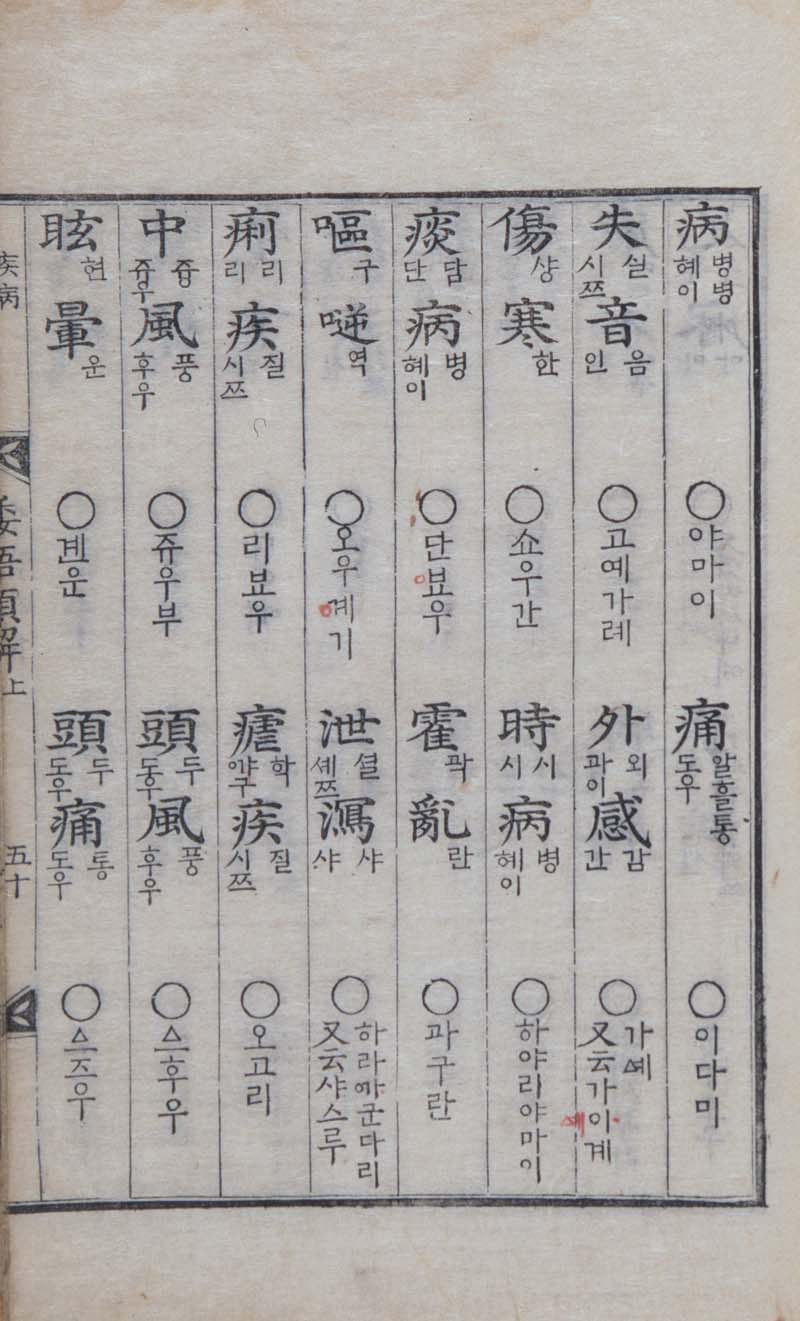 病 병병 혜이 ○야마이 痛 알흘통 도우 ○이다미
失 실 시쯔 音 음 인 ○고예가례 外 외 과이 感 감 간 ○가 又云가이계
傷 샹 寒 한 ○쇼우간 時 시 시 病 병 혜이 ○하야리야마이
痰 담 단 病 병 혜이 ○단뵤우 霍 곽 亂 란 ○과구란
嘔 구 㖁 역 ○오우계기 泄 셜 셰쯔 瀉 샤 샤 ○하라 군다리 又云샤스루
痢 리 리 疾 질 시쯔 ○리뵤우 瘧 학 疾 질 시쯔 ○오고리
中 즁 쥬우 風 풍 후우 ○쥬우부 頭 두 風 풍 후우 ○스후우
眩 현 暈 운 ○겐운 頭 두 도우 痛 통 도우 ○스즈우
疾病 倭語類解 上 五十